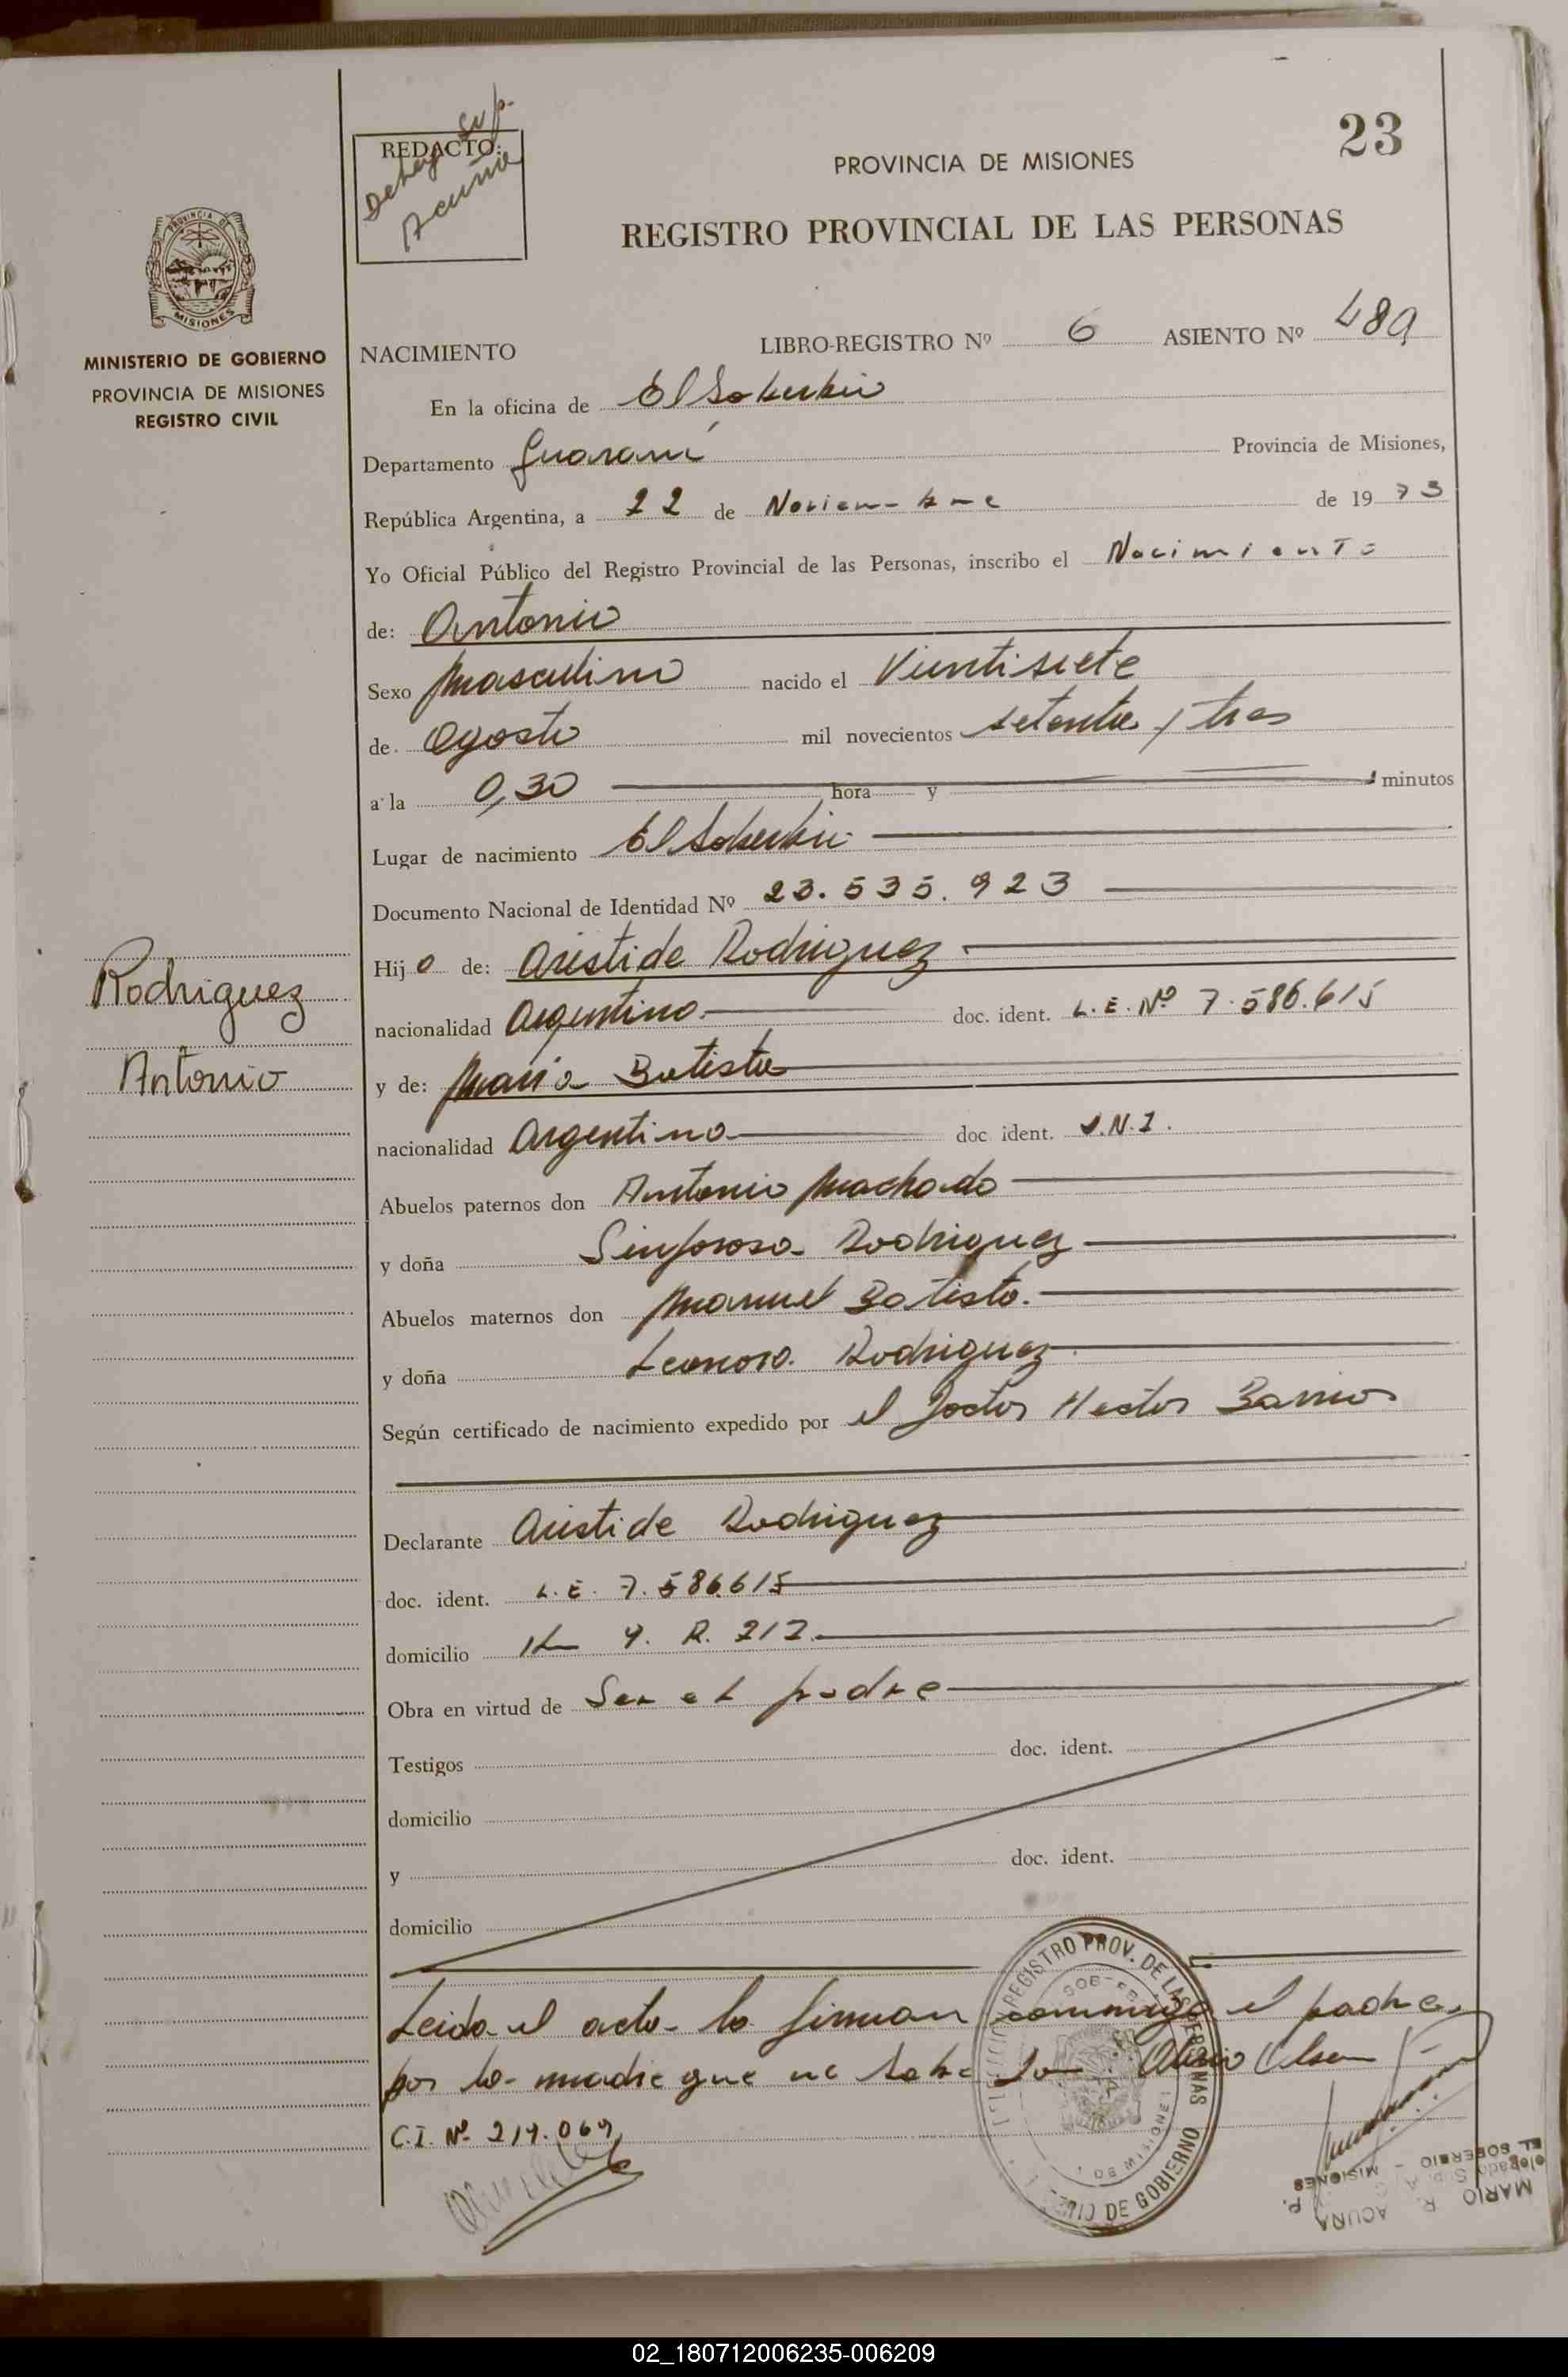 23
REDACTO:
Deleg Sup.
Acuña
PROVINCIA DE MISIONES
REGISTRO PROVINCIAL DE LAS PERSONAS
PROVINCIA DE
MISIONES
MINISTERIO DE GOBIERNO
PROVINCIA DE MISIONES
REGISTRO CIVIL
NACIMIENTO LIBRO-REGISTRO Nº 6 ASIENTO Nº 489
En la oficina de El Soberbio
Departamento Guaraní Provincia de Misiones,
República Argentina, a 22 de Noviembre de 1973
Yo Oficial Público del Registro Provincial de las Personas, inscribo el Nacimiento
de: Antonio
Sexo Masculino nacido el Vientisiete
de Agosto mil novecientos setenta y tres
a la 0,30 hora y minutos
Lugar de nacimiento El Soberbio
Documento Nacional de Identidad Nº 23.535.923
Hijo de: Aristide Rodriguez
nacionalidad Argentino doc. ident. L.E. Nº 7.586.615
y de: Maria Batista
nacionalidad Argentina doc ident. I.N.I.
Abuelos paternos don Antonio Machado
y doña Sinforosa Rodriguez
Abuelos maternos don Manuel Batista.
y doña Leonora Rodriguez
Según certificado de nacimiento expedido por el Doctor Hector Barrios
Declarante Aristide Rodriguez
doc. ident. L.E. 7.586.615
domicilio K 4. R. 212
Obra en virtud de Ser el padre
Testigos doc. ident.
domicilio
y doc. ident.
domicilio
Rodriguez
Antonio
Leida el acta la firman conmigo el padre,
por la madre que no sabe
C.I. Nº 219.069
REGISTRO PROV. DE LAS PERSONAS
DE GOBIERNO
MARIO R. ACUÑA
EL SOBERBIO - MISIONES
02_180712006235-006209